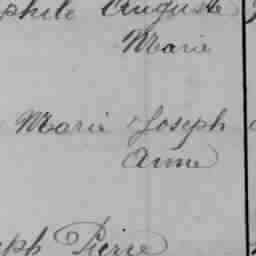 phile Auguste
Marie
Marie Joseph
Anne
eph Pierre